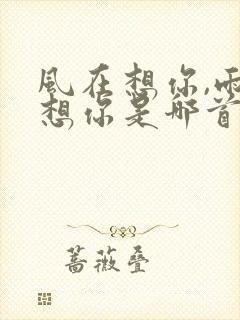 風在想你,雨
想你是那首
蔷薇叠